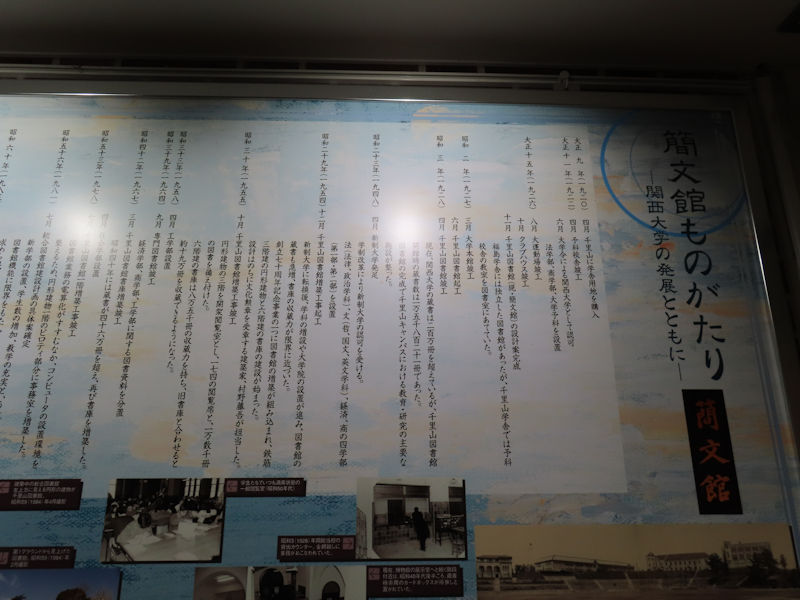 簡文館ものがたり
―関西大学の発展とともに―
簡文館
大正 九 年(一九二〇) 四月 千里山に学舎用地を購入
大正 十一 年(一九二二) 四月 予科校舎竣工
六月 大学令による関西大学として認可
法学部、商学部、大学予科を設置
大正 十五 年(一九二六) 八月 大運動場竣工
十月 クラブハウス竣工
十一月 千里山図書館(現、簡文館)の設計案完成
福島学舎には独立した図書館があったが、千里山学舎では予科
校舎の教室を図書室にあてていた。
昭和 二 年(一九二七) 三月 大学本館竣工
六月 千里山図書館起工
昭和 三 年(一九二八) 四月 千里山図書館竣工
現在、関西大学の蔵書は二百万冊を超えているが、千里山図書館
開館時の蔵書数は二万五千八百二十一冊であった。
図書館の完成で千里山キャンパスにおける教育・研究の主要な
施設が整った。
昭和二十三年(一九四八) 四月 新制大学発足
学制改革により新制大学の認可を受ける。
法(法律、政治学科)、文(哲、国文、英文学科)、経済、商の四学部
(第一部、第二部)を設置
昭和二十九年(一九五四) 十二月 千里山図書館増築工事起工
新制大学に転換後、学科の増設や大学院の設置が進み、図書館の
蔵書も急増、書庫の収蔵力が限界に近づいた。
創立七十周年記念事業の一つに図書館の増築が組み込まれ、鉄筋
三階建の円形建物と六階建の書庫の建設が始まった。
設計はのちに文化勲章を受章する建築家、村野藤吾が担当した。
昭和 三十 年(一九五五) 十月 千里山図書館増築工事竣工
円形建物の二階を開架閲覧室とし、一七四の閲覧席と、一万数千冊
の図書を備え付けた。
六階建の書庫は八万五千冊の収蔵力を持ち、旧書庫と合わせると
約十九万冊を収蔵できるようになった。
昭和三十三年(一九五八) 四月 工学部設置
昭和三十九年(一九六四) 九月 専門図書館竣工
経済学部、商学部、工学部に関する図書資料を分置
昭和四十二年(一九六七) 三月 千里山図書館書庫増築竣工
昭和四十年には蔵書が四十六万冊を超え、再び書庫を増築した。
昭和五十三年(一九七八)
図書館二階増築工事竣工
図書館業務の電算化がすすむなか、コンピュータの設置環境を
整えるため、円形建物一階のピロティ部分に事務室を増築した。
昭和五十六年(一九八一) 七月 総合図書館建設計画の具体案確定
新学部の設置、学生数の増加、教学の充実
図書館機能に限界をもたら
昭和 六十 年(一九八五)
建築中の総合図書館
左上方に見える円形の建物が
千里山図書館。
昭和59(1984)年4月撮影
学生たちでいつも満席状態の
一般閲覧室(昭和50年代)
第1グラウンドから見上げた
図書館。昭和59(1984)年
2月撮影
昭和3(1928)年開館当初の
貸出カウンター。金網越しに
業務がおこなわれていた。